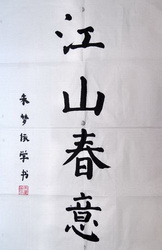 江山春意
朱梦振学书